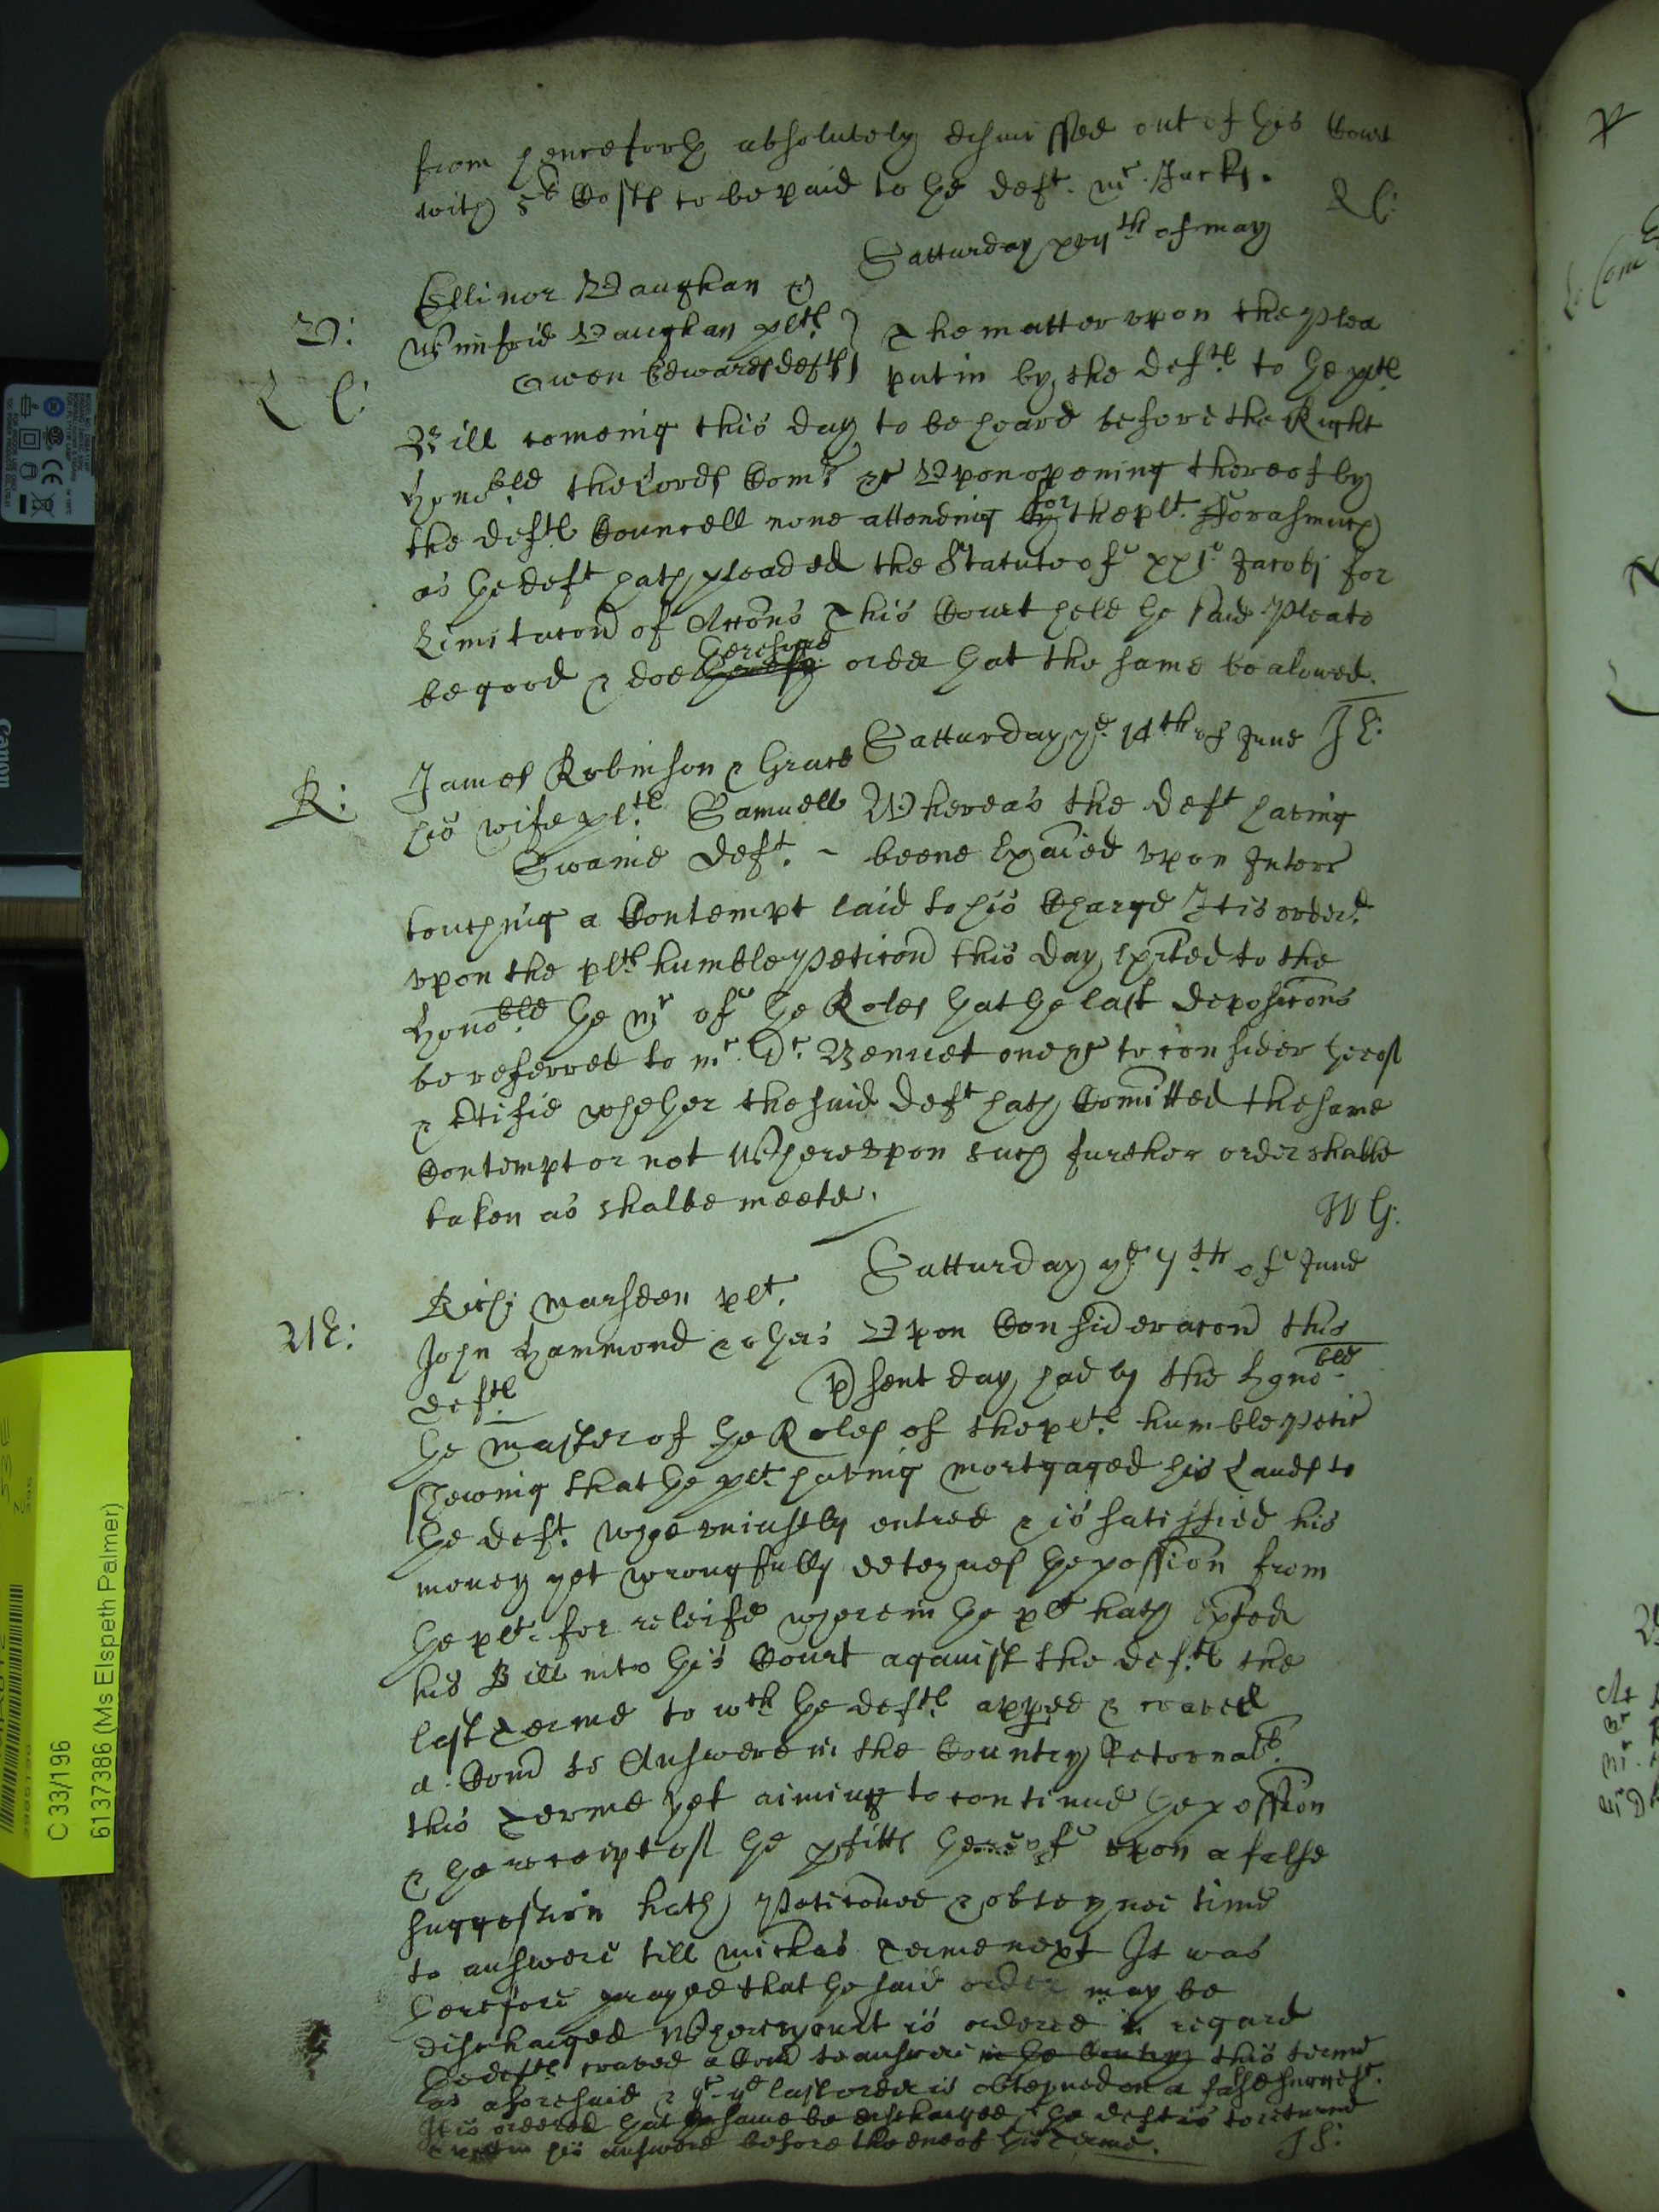 from henceforth absolutely dismissed out of this Court
with 5s Costs to be paid to the deft. mr. Jacks.
R C:
Satturday xvijth of may
Ellinor Vaughan &
V:
Winifrid Vaughan plts The matter vpon the Plea
Owen Edwards defts put in by the defts to the plts
R C:
Bill comeing this day to be heard before the Right
Honoble the Lords Comrs &c Vpon opening thereof by
the defts Councell none attending by for the plt. Forasmuch
as the deft hath pleaded the Statute of xxjo Jacobi for
Limitacon of Accons This Court held the said Plea to
be good & doe thereby therefore order that the same be alowed.
Satturday ye 14th of June J C:
R:
James Robinson & Grace
his wife plts Samuell Whereas the deft having
Swaine deft. - beene Exaied vpon Interr
touching a Contempt laid to his Charge It is ordered
vpon the plts humble Peticon this day exhited to the
Honoble the mr of the Roles that the last deposicons
be referred to mr. Dr. Bennet one &c to consider thereof
& certifie whether the said deft hath Comitted the same
Contempt or not Wherevpon such further order shalbe
taken as shalbe meete.
W G:
Satturday ye 7th of June
Richj Marsden plt.
M:
John Hammond & others Vpon Consideracon this
defts psent day had by the honoble
the Master of the Roles of the plts humble Petic
shewing that the plt having mortgaged his Lands to
the deft. whoe vniustly entred & is satisfied his
money yet wrongfully deteynes the possion from
the plt. for releife wherein the plt hath exhited
his Bill into this Court against the defts the
last Terme to wch the defts appeed & craved
a Comd to Answere in the Country Retornable
this Terme yet aiming to continue the possion
& the receipt of the pfitts thereof vpon a false
suggestion hath Peticoned & obteyned time
to answere till michas Terme next It was
therefore prayed that the said order may be
discharged Wherevpon it is ordered in regard
the defts craved a Comd to answere in the Contrey this terme
as aforesaid & yt ye last order is obteyned on a false suggest.
It is ordered that the same be discharged & the deft is to returne
his answere before the end of this Terme.
J C:
C 33/196
6137386 (Ms Elspeth Palmer)
Canon